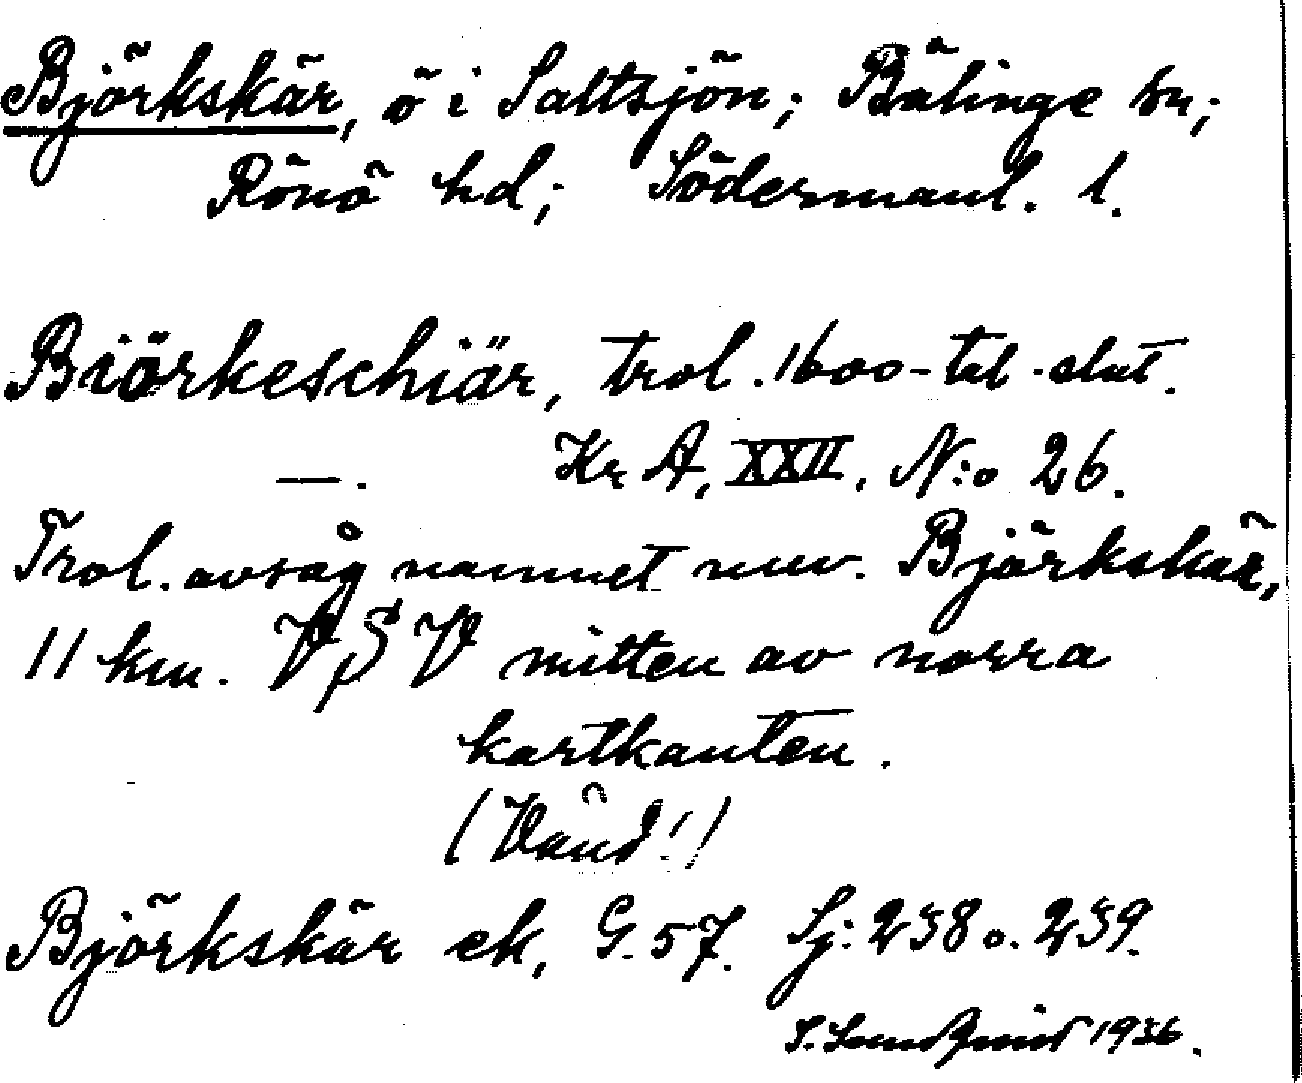 Björkskär, ö i Saltsjön; Bälinge sn;
Rönö hd; Södermanl. l.
Biörkeschiär, trol. 1600-tal-slut.
—. Kr A, XXII, N:o 26.
Trol. avsåg namnet nuv. Björkskär,
11 km. V, S V mitten av norra
kartkanten.
(Vänd!)
Björkskär ek, G. 57. Sj: 238 o. 239.
1936.